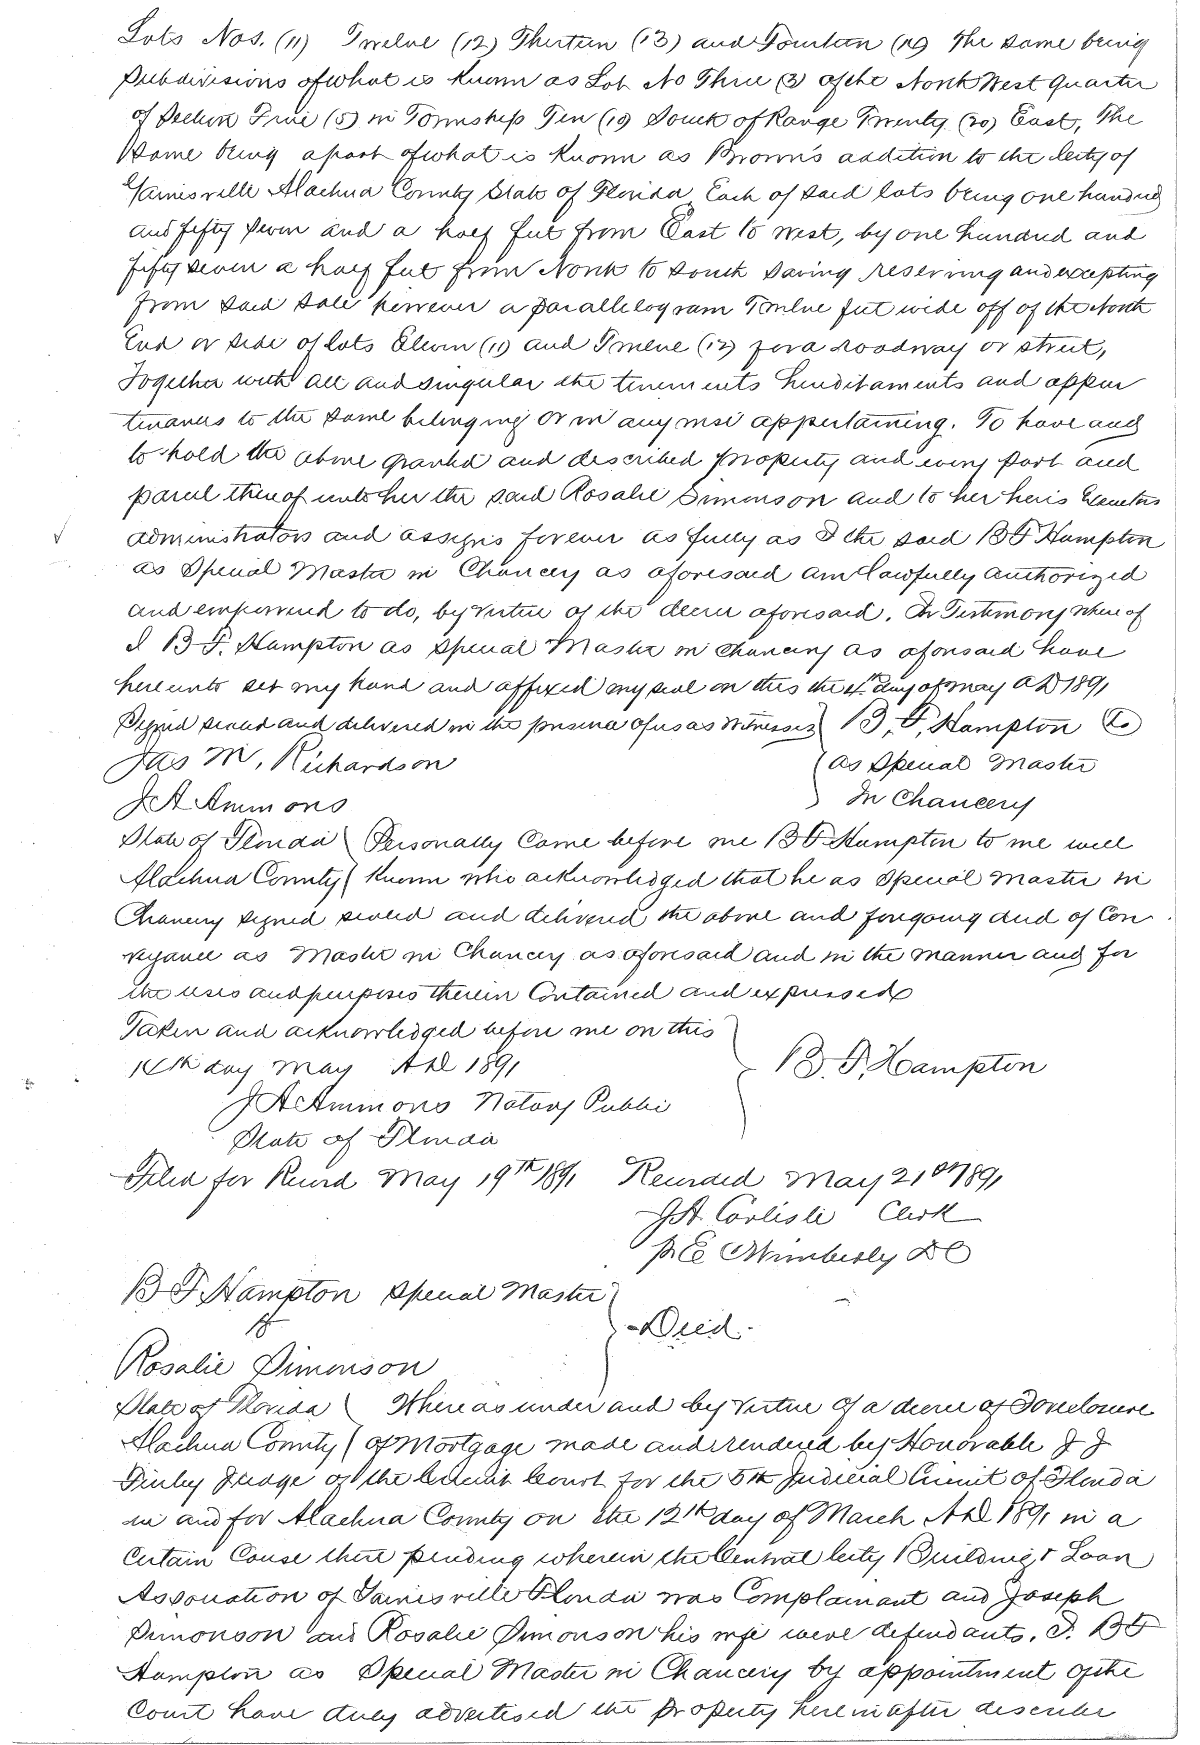 Lots Nos. (11) Twelve (12) Thirteen (13) and Fourteen (14) The same being
Subdivisions of what is Known as Lot No Three (3) of the North West Quarter
of Section Five (5) in Township Ten (10) South of Range Twenty (20) East, The
Same being a part of what is Known as Brown's addition to the City of
Gainesville Alachua County State of Florida Each of said lots being one hundred
and fifty seven and a half feet from East to West, by one hundred and
fifty seven a half feet from North to South Saving reserving and excepting
from said sale however a parallelogram Twelve feet wide off of the North
End or side of lots Eleven (11) and Twelve (12) for a roadway or street,
Together with all and singular the tenements hereditaments and appur
tenances to the same belonging or in any wise appertaining. To have and
to hold the above granted and described property and every part and
parcel thereof unto her the said Rosalie Simonson and to her heirs Executors
administrators and assigns forever as fully as I the said B F Hampton
as Special Master in Chancery as aforesaid am lawfully authorized
and empowered to do, by virtue of the decree aforesaid. In Testimony where of
I B. F. Hampton as Special Master in Chancery as aforesaid have
hereunto set my hand and affixed my seal on this the day of May AD 1891
Signed sealed and delivered in the presence of us as Witnesses B. F. Hampton
Jas M. Richardson as Special Master
J A Ammons In Chancery
State of Florida Personally Came before me B F Hampton to me well
Alachua County Known who acknowledged that he as Special Master in
Chancery signed sealed and delivered the above and foregoing deed of Con
veyance as Master in Chancery as aforesaid and in the manner and for
the uses and purposes therein Contained and expressed
Taken and acknowledged before me on this
day May AD 1891 B. F. Hampton
J A Ammons Notary Public
State of Florida
Filed for Record May 19th 1891 Recorded May 21st 1891
J A. Carlisle Clerk
pr E C Wimberly DC
B F. Hampton Special Master
to Deed.
Rosalie Simonson
State of Florida Whereas under and by virtue of a decree of Foreclosure
Alachua County of Mortgage made and rendered by Honorable J J
Finley Judge of the Circuit Court for the 5th Judicial Circuit of Florida
in and for Alachua County on the 12th day of March AD 1891 in a
Certain Cause there pending wherein the Central City Building & Loan
Association of Gainesville Florida was Complainant and Joseph
Simonson and Rosalie Simonson his wife were defendants. I. B F
Hampton as Special Master in Chancery by appointment of the
Court have duly advertised the property herein after describe